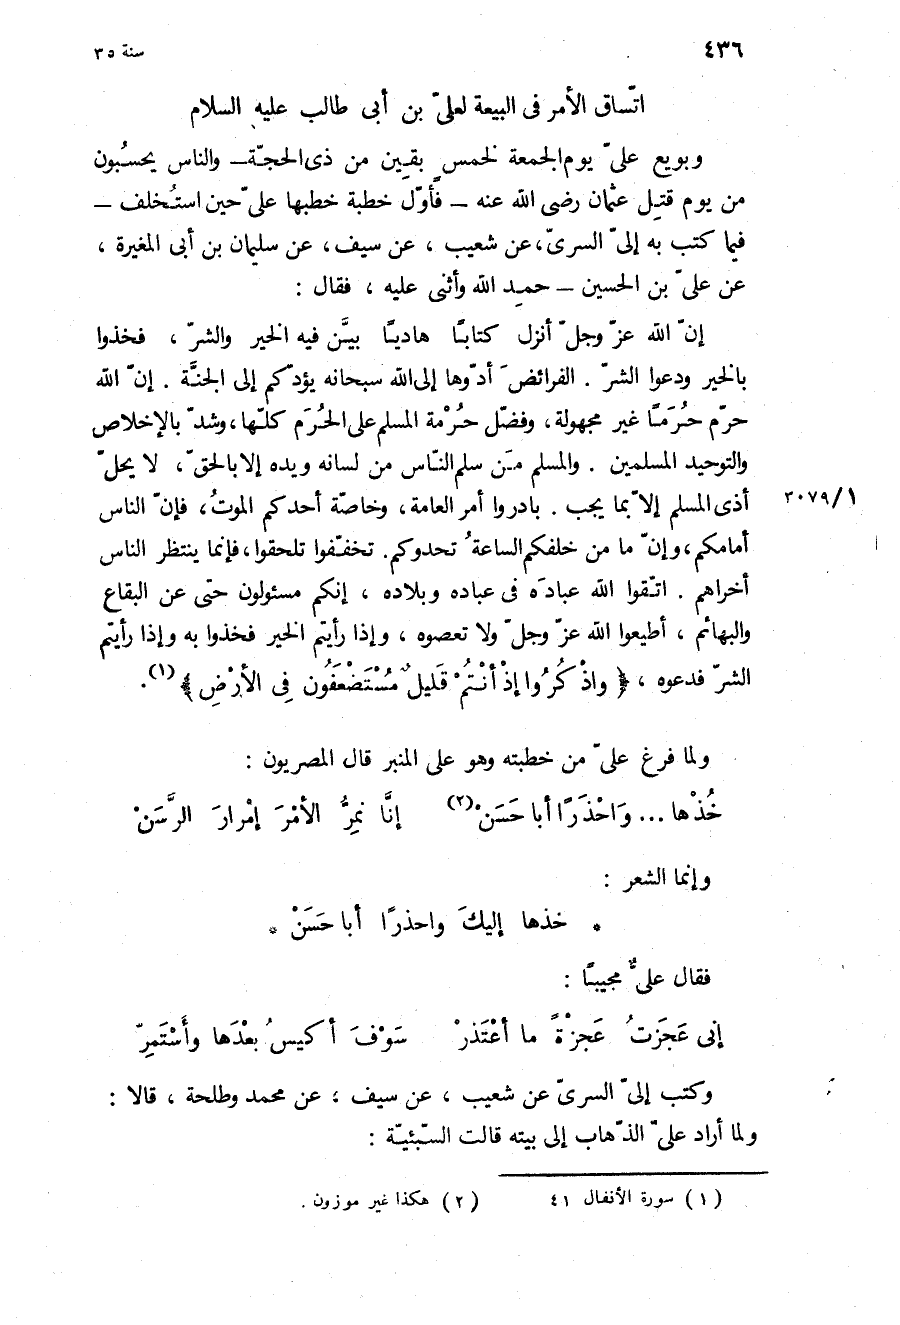 ٤٣٦
سنة ٣٥
اتّساق الأمر فى البيعة لعلىّ بن أبى طالب عليه السلام
وبويع علىّ يوم الجمعة لخمسٍ بقين من ذى الحجّة – والناس يحسُبون
من يوم قتِل عثمان رضى الله عنه – فأوّل خطبة خطبها علىّ حين استُخلف –
فيما كتب به إلىّ السرىّ، عن شعيب ، عن سيف، عن سليمان بن أبى المغيرة ،
عن علىّ بن الحسين – حمد الله وأثنى عليه ، فقال :
إنّ الله عزّ وجلّ أنزل كتابًا هاديًا بيَّن فيه الخير والشرّ ، فخذوا
بالخير ودعوا الشرّ . الفرائضَ أدّوها إلى الله سبحانه يؤدّكم إلى الجنَّة . إنّ الله
حرّم حُرَمًا غير مجهولة، وفضّل حُرْمة المسلم على الحُرَم كلّها، وشدّ بالإخلاص
والتوحيد المسلمين . والمسلم مَن سلم النّاس من لسانه ويده إلا بالحقّ، لا يحلّ
أذى المسلم إلاّ بما يجب . بادروا أمر العامة، وخاصّة أحدكم الموتُ، فإنّ الناس
٣٠٧٩/١
أمامكم، وإنّ ما من خلفكم الساعةُ تحدوكم. تخفّفوا تلحقوا، فإنما ينتظر الناس
أخراهم . اتّقوا الله عبادَه فى عباده وبلاده ، إنكم مسئولون حتى عن البقاع
والبهائم ، أطيعوا الله عزّ وجلّ ولا تعصوه ، وإذا رأيتم الخير فخذوا به وإذا رأيتم
الشرّ فدعوه ، ﴿ واذْكُرُوا إذْ أنْتُمْ قَليلٌ مُسْتَضْعَفُون فِى الأرْضِ ﴾(١).
ولما فرغ علىّ من خطبته وهو على المنبر قال المصريون :
خُذْها ... وَاحْذَرًا أبا حَسَنْ(٢) إنَّا نمِرُّ الأمْرَ إمْرارَ الرَّسَنْ
وإنما الشعر :
* خذها إليكَ واحذرًا أبا حَسَنْ *
فقال علىٌّ مجيبًا :
إنى عَجَزتُ عَجزْةً ما أعْتَذرْ سَوْفَ أكيسُ بعْدَها وأَسْتَمِرّ
وكتب إلىّ السرىّ عن شعيب ، عن سيف ، عن محمد وطلحة ، قالا :
ولما أراد علىّ الذّهاب إلى بيته قالت السّبئيّة :
(١) سورة الأنفال ٤١
(٢) هكذا غير موزون .